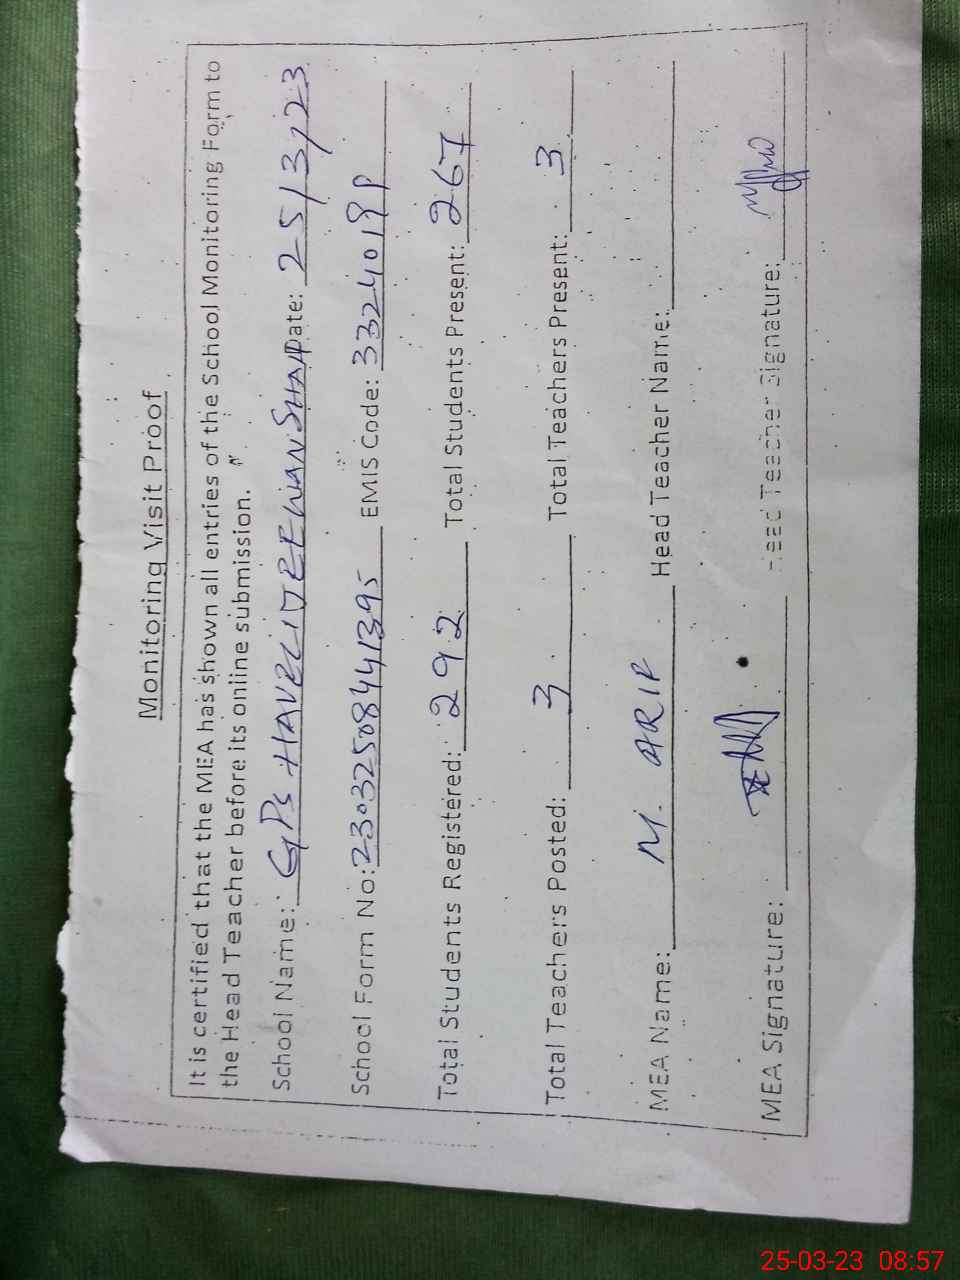 Monitoring Visit Proof
It is certified that the MEA has shown all entries of the School Monitoring Form to
the Head Teacher before its online submission.
School Name: GPS HAVELI DEEWAN SHAH Date: 25/3/23
School Form No: 230325084441395 EMIS Code: 33240181
Total Students Registered: 292 Total Students Present: 267
Total Teachers Posted: 3 Total Teachers Present: 3
MEA Name: M. ARIF Head Teacher Name:
MEA Signature: Head Teacher Signature:
25-03-23 08:57